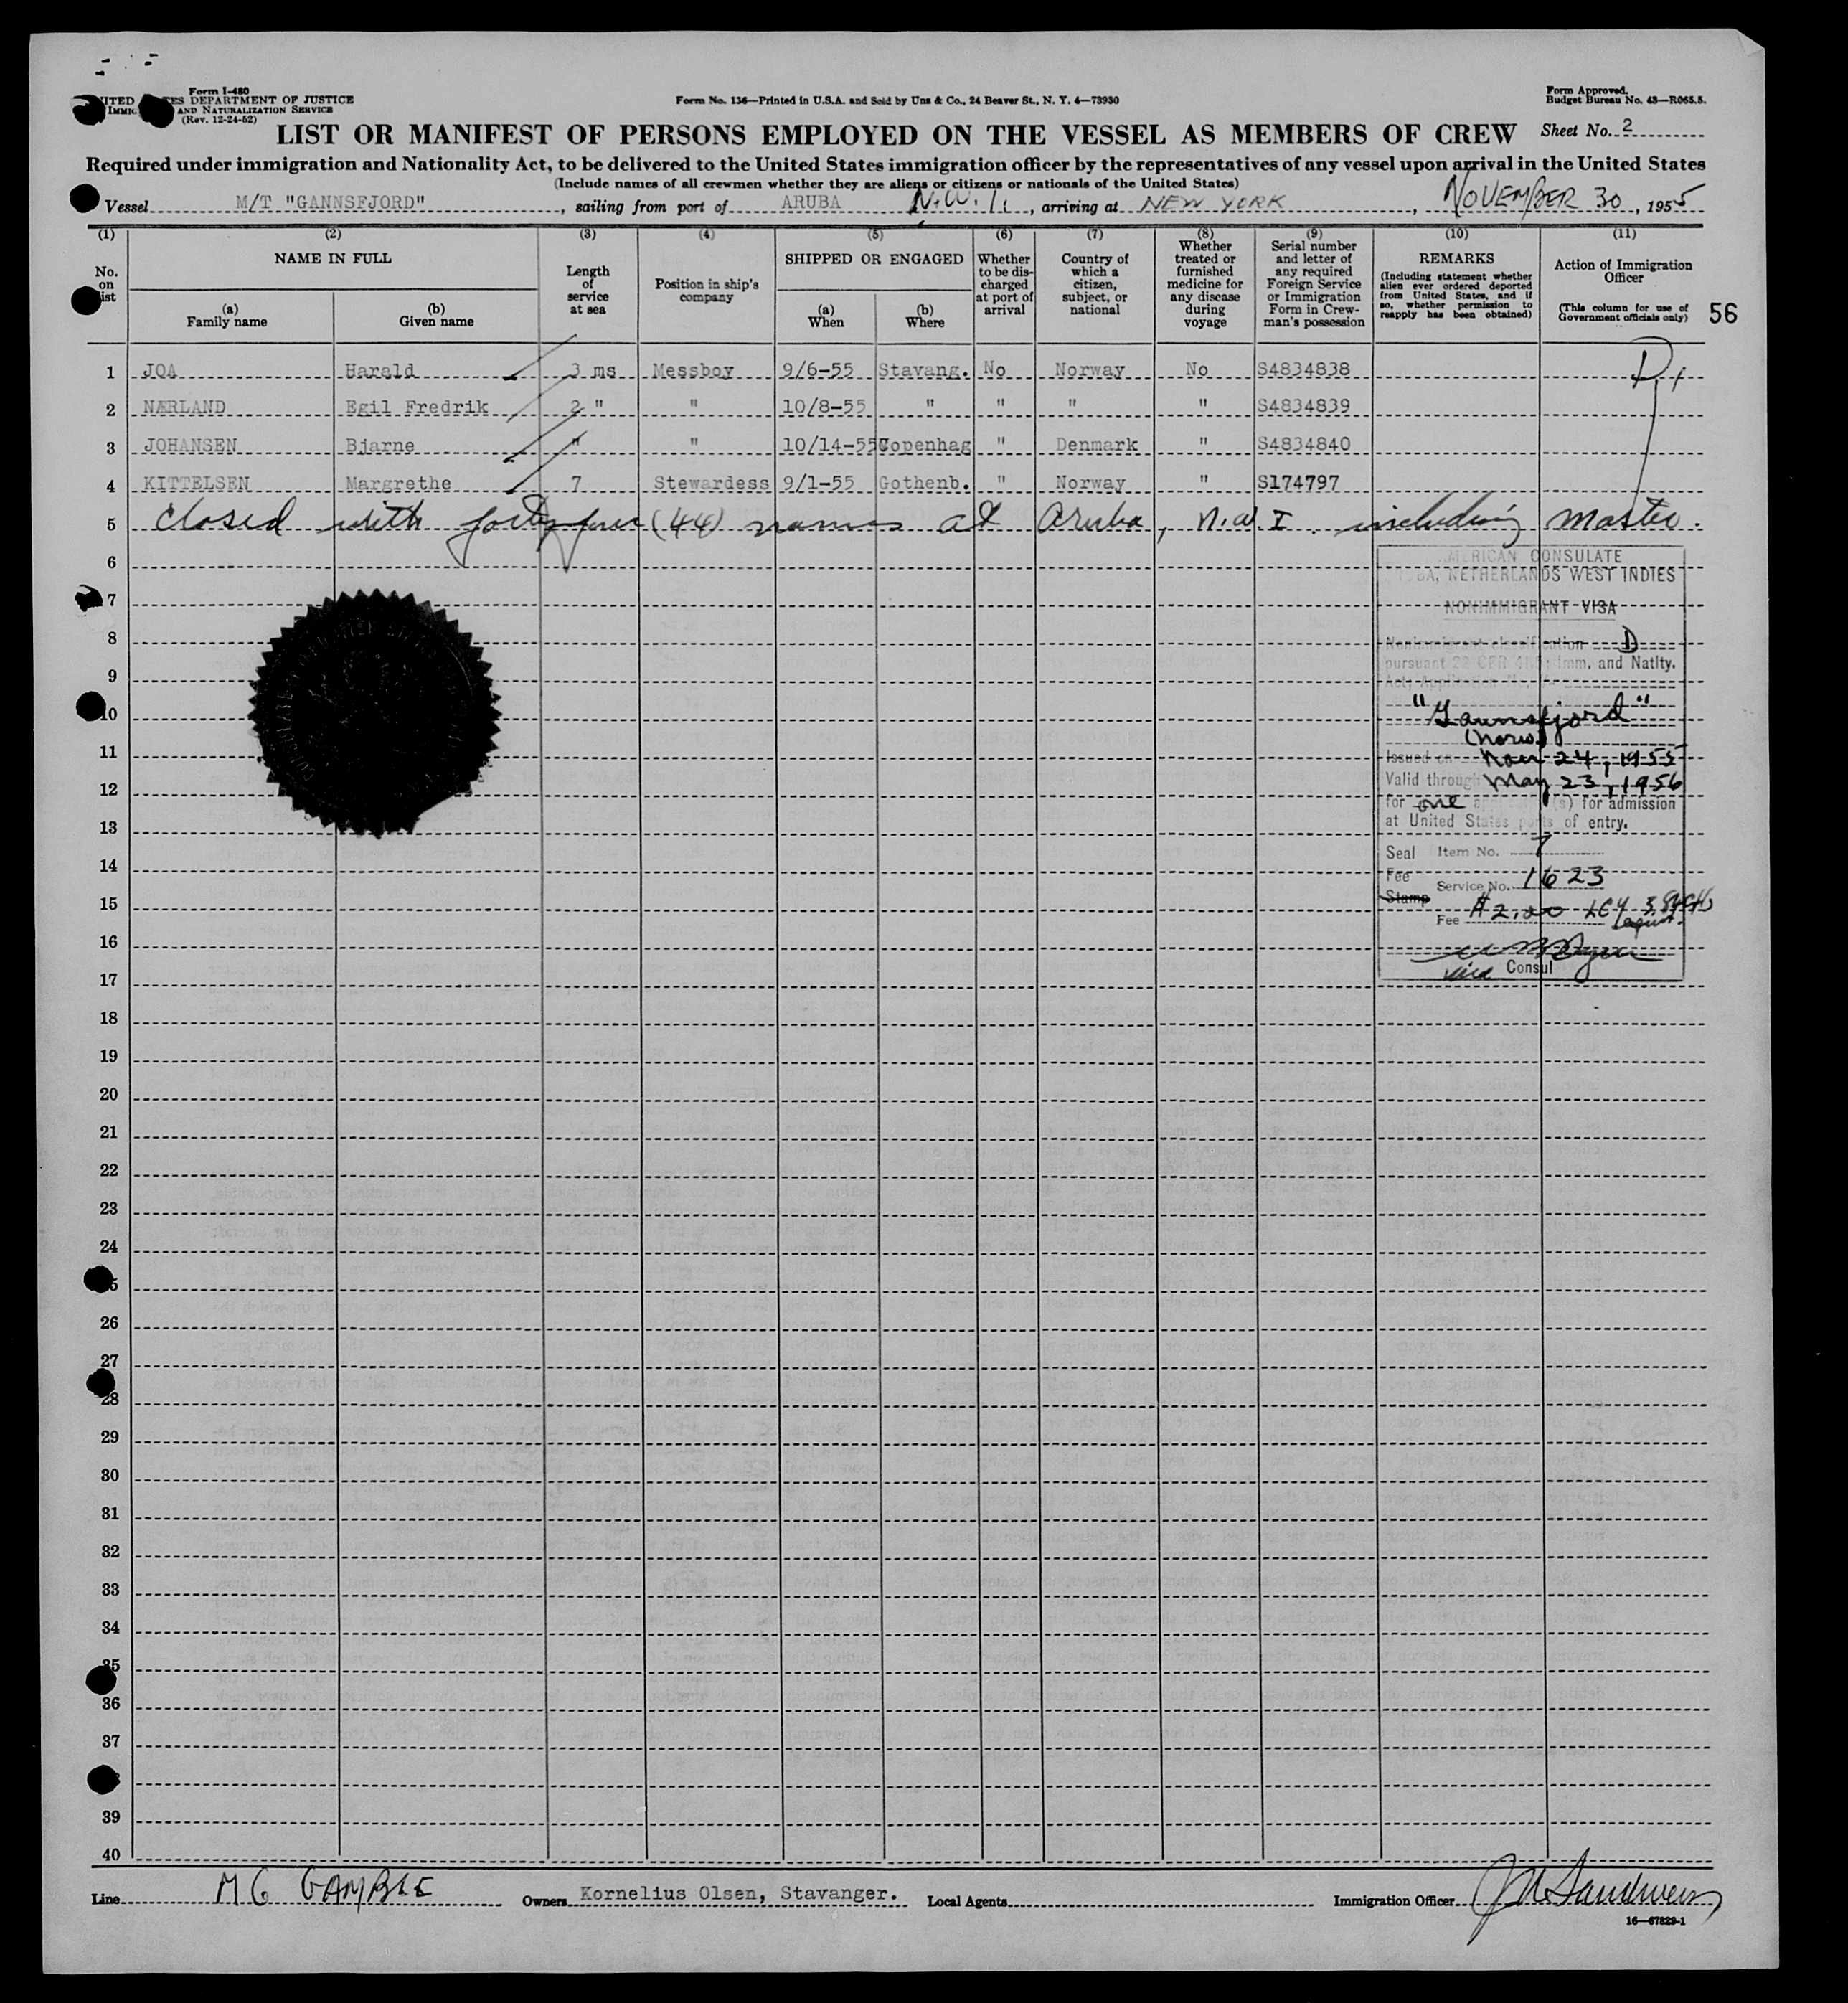 Form I-480
UNITED STATES DEPARTMENT OF JUSTICE
IMMIG. AND NATURALIZATION SERVICE
(Rev. 12-24-52)
Form No. 136—Printed in U.S.A. and Sold by Unz & Co., 24 Beaver St., N. Y. 4—73930
Form Approved.
Budget Bureau No. 43—R065.5.
LIST OR MANIFEST OF PERSONS EMPLOYED ON THE VESSEL AS MEMBERS OF CREW
Sheet No. 2
Required under immigration and Nationality Act, to be delivered to the United States immigration officer by the representatives of any vessel upon arrival in the United States
(Include names of all crewmen whether they are aliens or citizens or nationals of the United States)
Vessel M/T "GANNSFJORD", sailing from port of ARUBA N.W.I., arriving at NEW YORK, NOVEMBER 30, 1955
(1) (2) (3) (4) (5) (6) (7) (8) (9) (10) (11)
No. on list
NAME IN FULL
(a) Family name
(b) Given name
Length of service at sea
Position in ship's company
SHIPPED OR ENGAGED
(a) When
(b) Where
Whether to be discharged at port of arrival
Country of which a citizen, subject, or national
Whether treated or furnished medicine for any disease during voyage
Serial number and letter of any required Foreign Service or Immigration Form in Crewman's possession
REMARKS
(Including statement whether alien ever ordered deported from United States, and if so, whether permission to reapply has been obtained)
Action of Immigration Officer
(This column for use of Government officials only)
56
1 JOA Harald 3 ms Messboy 9/6-55 Stavang. No Norway No S4834838
2 NÆRLAND Egil Fredrik 2 " " 10/8-55 " " " " S4834839
3 JOHANSEN Bjarne " " 10/14-55 Copenhag " Denmark " S4834840
4 KITTELSEN Margrethe 7 Stewardess 9/1-55 Gothenb. " Norway " S174797
5 Closed with forty four (44) names at Aruba, N.W.I. including master.
AMERICAN CONSULATE
BA, NETHERLANDS WEST INDIES
NONIMMIGRANT VISA
Nonimmigrant classification D
pursuant 22 CFR Imm. and Natlty.
Act; Application No.
"Gannsfjord"
(Norw.)
Issued on Nov 24, 1955
Valid through May 23, 1956
for one (s) for admission
at United States ports of entry.
Seal Item No. 7
Fee Service No. 1623
Stamp
Fee $2.00
Vice Consul
6
7
8
9
10
11
12
13
14
15
16
17
18
19
20
21
22
23
24
25
26
27
28
29
30
31
32
33
34
35
36
37
39
40
Line M G GAMBLE
Owners Kornelius Olsen, Stavanger.
Local Agents
Immigration Officer
16—67829-1